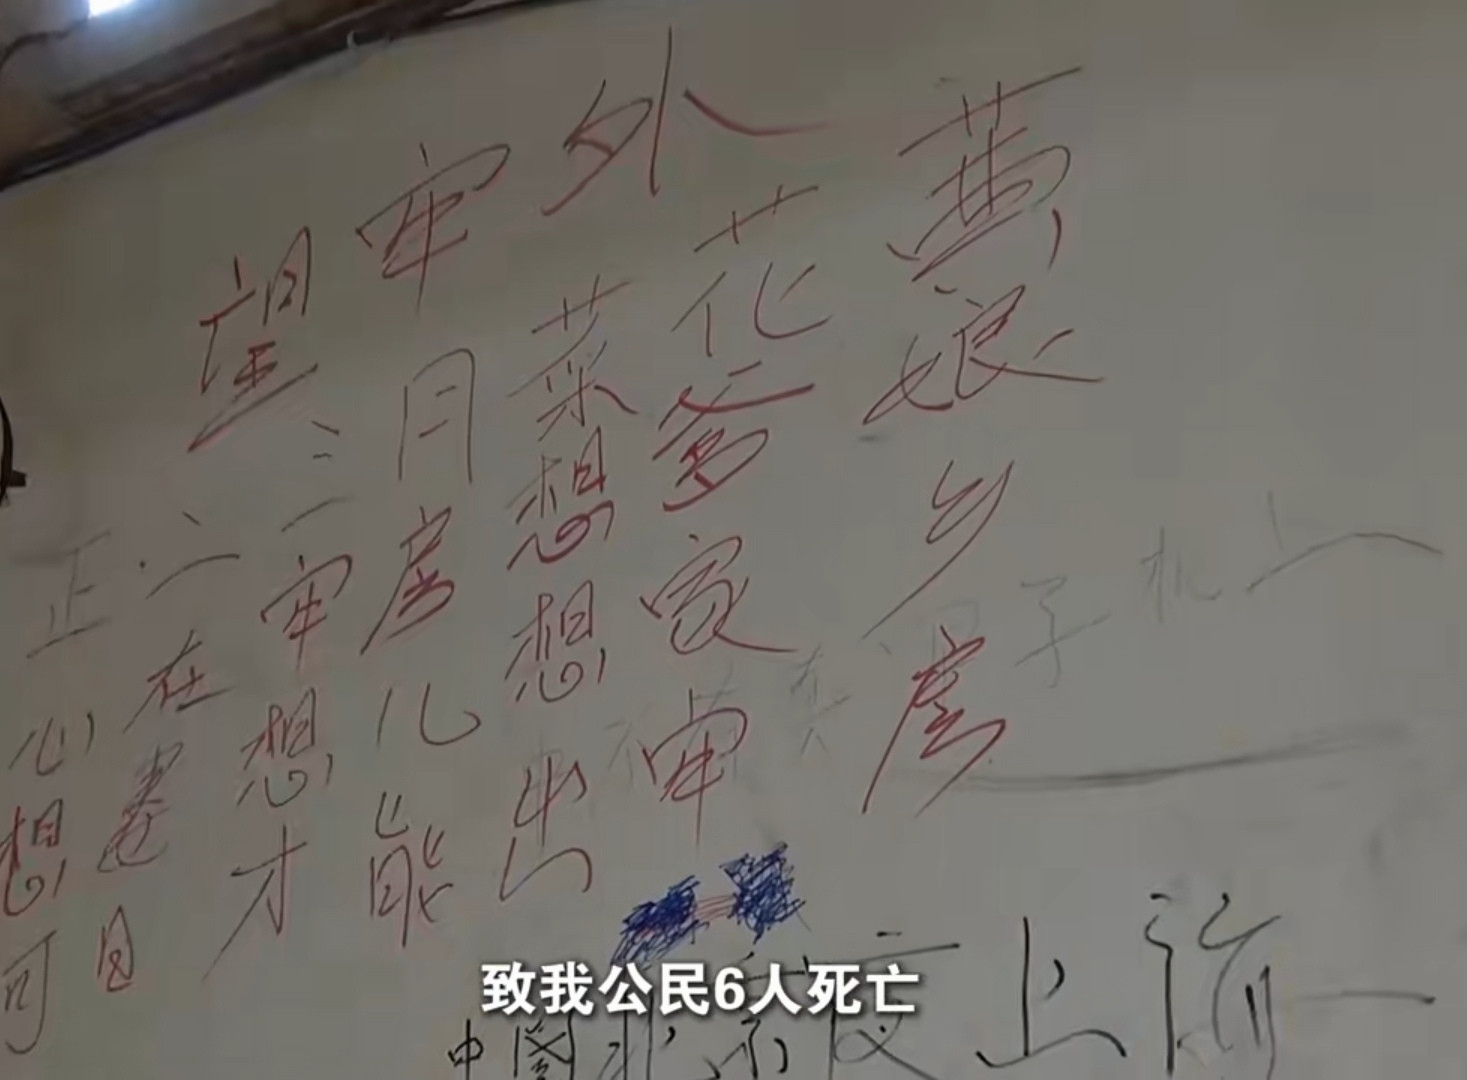 望牢外
正二三月菜花黄
心在牢房想爹娘
想妻想儿想家乡
何日才能出牢房
中國北京
致我公民6人死亡